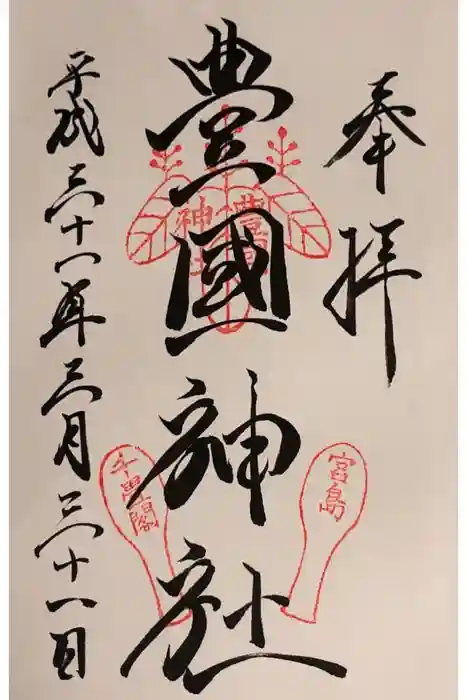 奉拝
豊國神社
豊國神社
宮島
千畳閣
平成三十一年三月三十一日